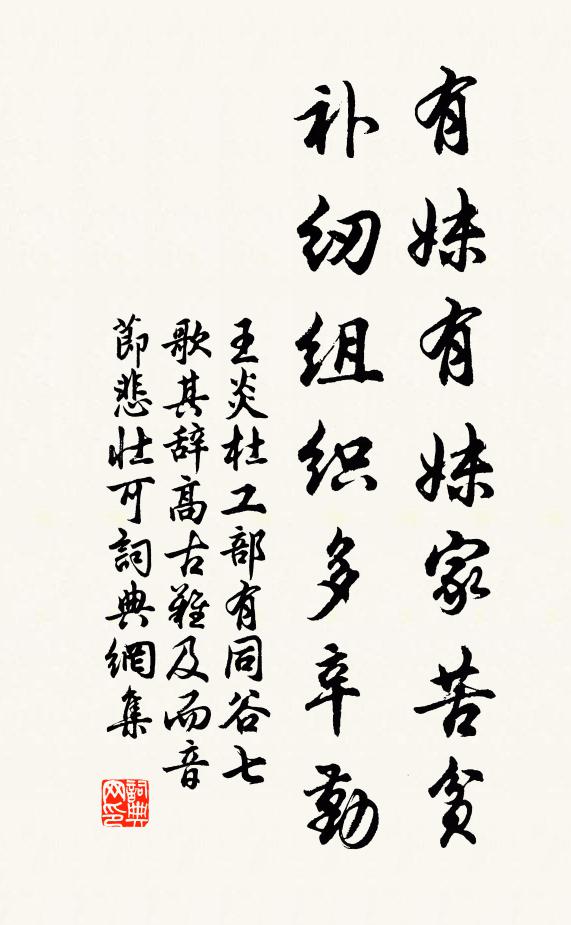 有妹有妹家苦贫
补纫组织多辛勤
王炎杜工部有同谷七
歌其辞高古難及而音
節悲壮可詞典網集
詞典网印